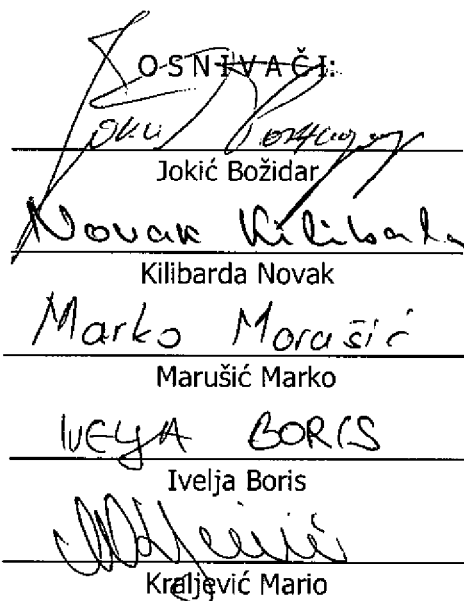 O S N I V A Č I:
Jokić Božidar
Novak Kilibarda
Kilibarda Novak
Marko Marušić
Marušić Marko
IVELJA BORIS
Ivelja Boris
Kraljević Mario